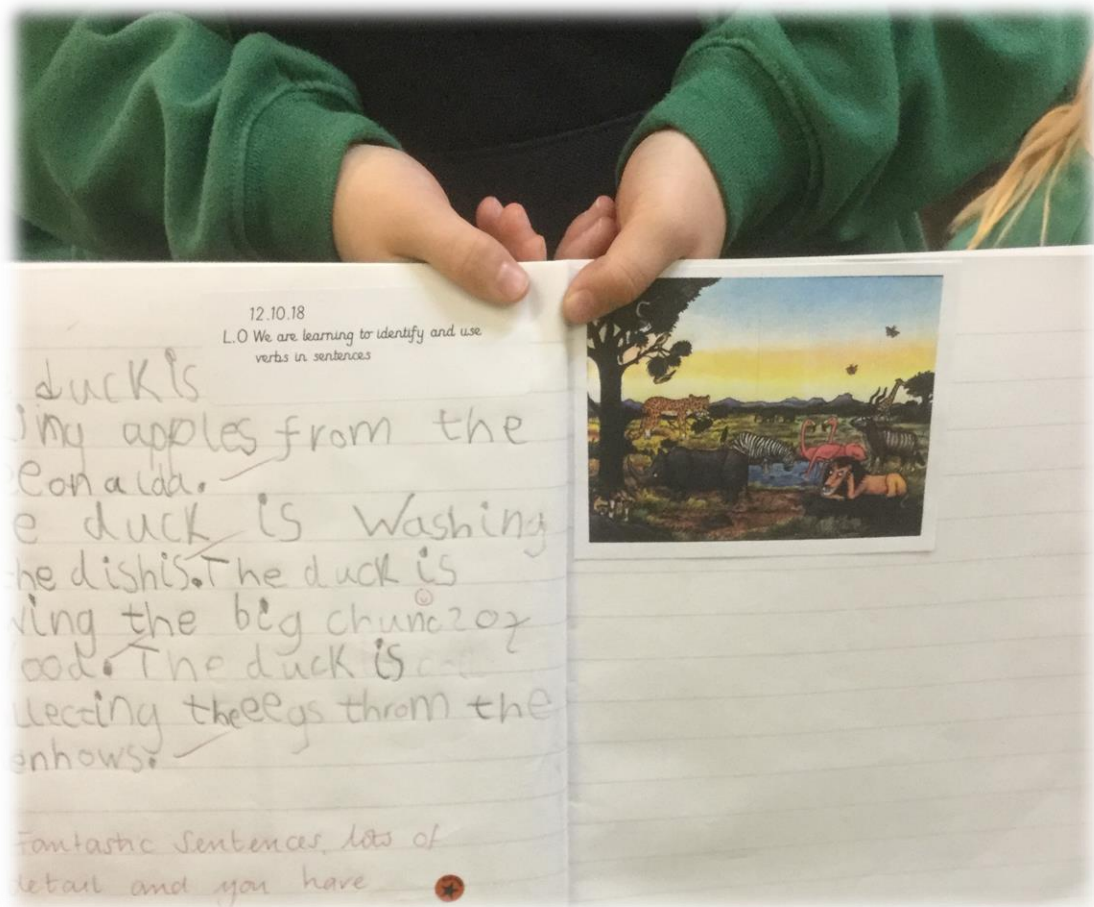 12.10.18
L.O We are learning to identify and use
verbs in sentences
duck is
ing apples from the
duck is washing
he dishis. The duck is
ving the big chunc
ood. The duck is
llecting the eegs throm the
enhows.
Fantastic sentences, lots of
detail and you have